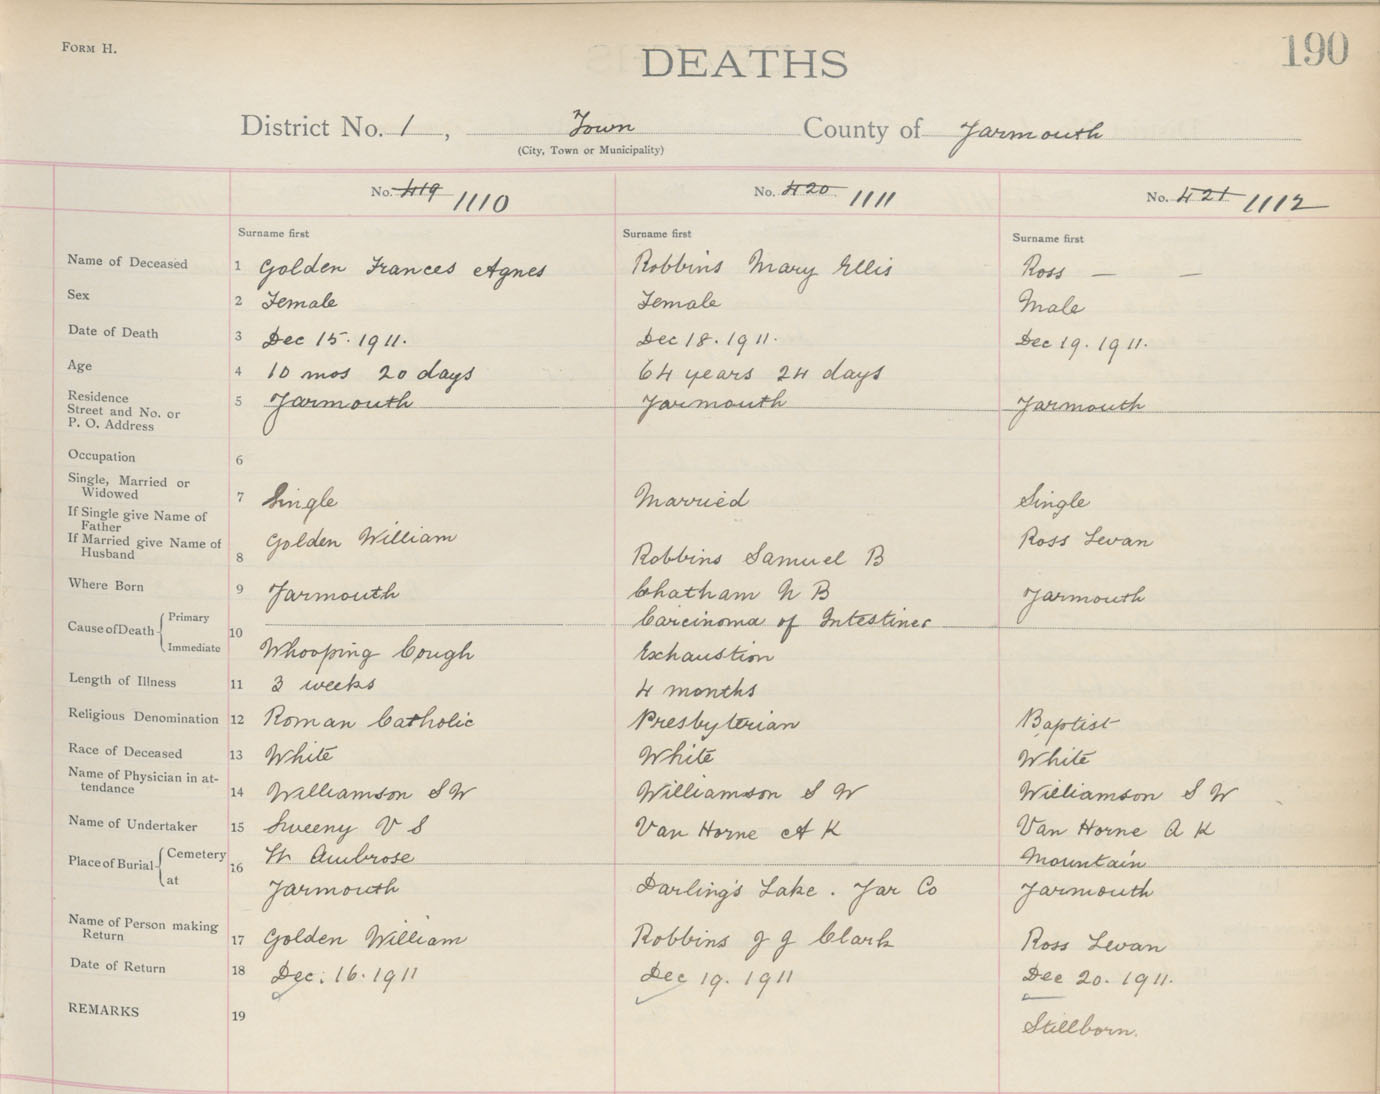 Form H.
DEATHS
190
District No. 1, Town County of Yarmouth
(City, Town or Municipality)
No. 419 1110 No. 420 1111 No. 421 1112
Surname first Surname first Surname first
Name of Deceased 1 Golden Frances Agnes Robbins Mary Ellis Ross — —
Sex 2 Female Female Male
Date of Death 3 Dec 15. 1911. Dec 18. 1911. Dec 19. 1911.
Age 4 10 mos 20 days 64 years 24 days
Residence
Street and No. or
P. O. Address 5 Yarmouth Yarmouth Yarmouth
Occupation 6
Single, Married or
Widowed 7 Single Married Single
If Single give Name of
Father
If Married give Name of
Husband 8 Golden William Robbins Samuel B Ross Levan
Where Born 9 Yarmouth Chatham N B Yarmouth
Cause of Death 10 Primary Carcinoma of Intestines
Immediate Whooping Cough Exhaustion
Length of Illness 11 3 weeks 4 months
Religious Denomination 12 Roman Catholic Presbyterian Baptist
Race of Deceased 13 White White White
Name of Physician in at-
tendance 14 Williamson S W Williamson S W Williamson S W
Name of Undertaker 15 Sweeny V S Van Horne A K Van Horne A K
Place of Burial 16 Cemetery St Ambrose Mountain
at Yarmouth Darling's Lake. Yar Co Yarmouth
Name of Person making
Return 17 Golden William Robbins J G Clark Ross Levan
Date of Return 18 Dec. 16. 1911 Dec 19. 1911 Dec 20. 1911.
REMARKS 19 Stillborn.